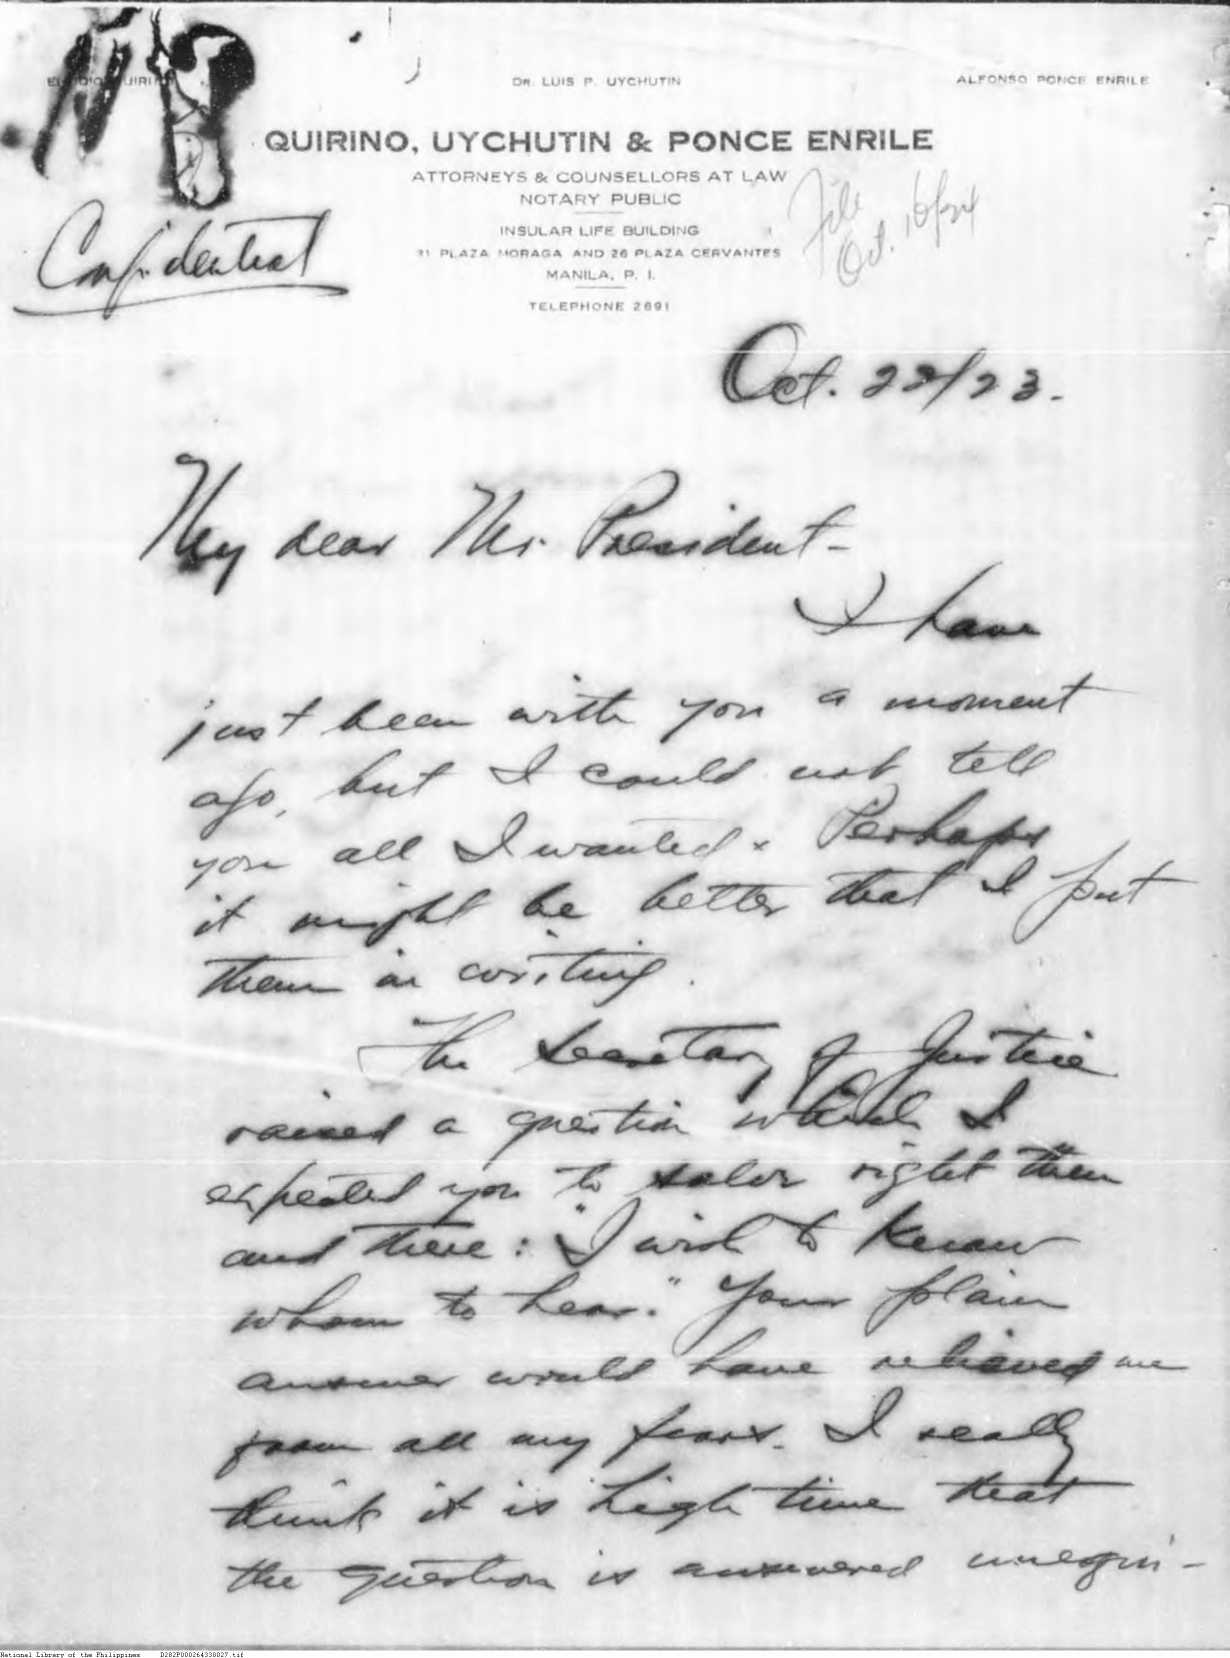 ELPIDIO QUIRINO
DR. LUIS P. UYCHUTIN
ALFONSO PONCE ENRILE
QUIRINO, UYCHUTIN & PONCE ENRILE
ATTORNEYS & COUNSELLORS AT LAW
NOTARY PUBLIC
INSULAR LIFE BUILDING
31 PLAZA MORAGA AND 26 PLAZA CERVANTES
MANILA, P. I.
TELEPHONE 2691
File
Oct. 16/24
Confidential
Oct. 22/23.
My dear Mr. President-
I have
just been with you a moment
ago, but I could not tell
you all I wanted. Perhaps
it might be better that I put
them in writing.
The Secretary of Justice
raised a question which I
expected you to solve right then
and there: "I wish to know
whom to hear." Your plain
answer would have relieved me
from all my fears. I really
think it is high time that
the question is answered unequi-
National Library of the Philippines D282P000264338027.tif